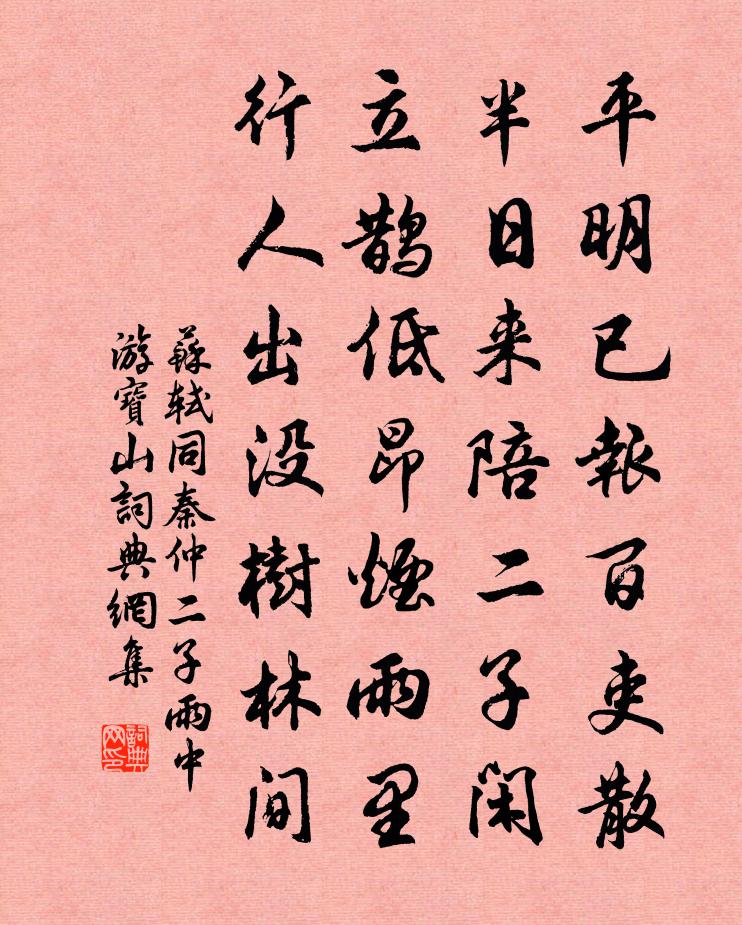 平明已報百吏散
半日来陪二子閑
立鵲低昂煙雨里
行人出没樹林间
蘇軾同秦仲二子雨中
游寶山詞典網集
詞典
网印